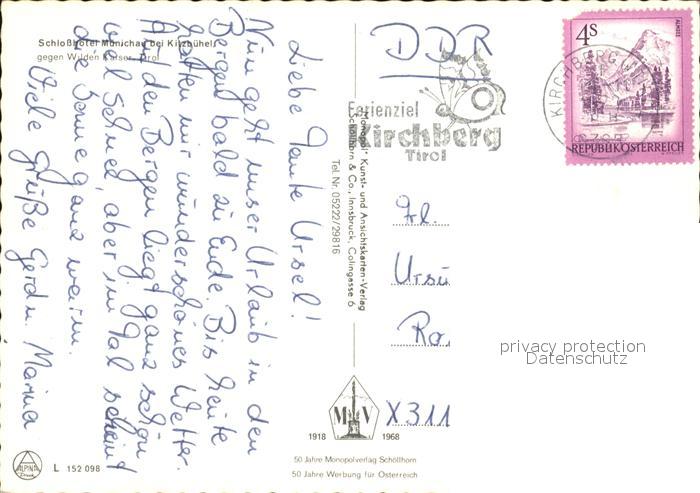 Schloßhotel Münichau bei Kitzbühel
gegen Wilden Kaiser, Tirol
Liebe Tante Ursel!
Nun geht unser Urlaub in den
Bergen bald zu Ende. Bis heute
hatten wir wunderschönes Wetter.
Auf den Bergen liegt ganz schön
viel Schnee, aber im Tal scheint
die Sonne ganz warm.
Viele Grüße Gerd u. Marina
"Monopol" Kunst- und Ansichtskarten-Verlag
Schöllhorn & Co., Innsbruck, Colingasse 6
Tel. Nr. 05222/29816
DDR
Ferienziel
Kirchberg
Tirol
KIRCHBERG
6365
4S
ALMSEE
REPUBLIK ÖSTERREICH
Fl.
Ursu
Ro.
X311
privacy protection
Datenschutz
M V
1918 1968
50 Jahre Monopolverlag Schöllhorn
50 Jahre Werbung für Österreich
ALPINA
Druck
L 152 098